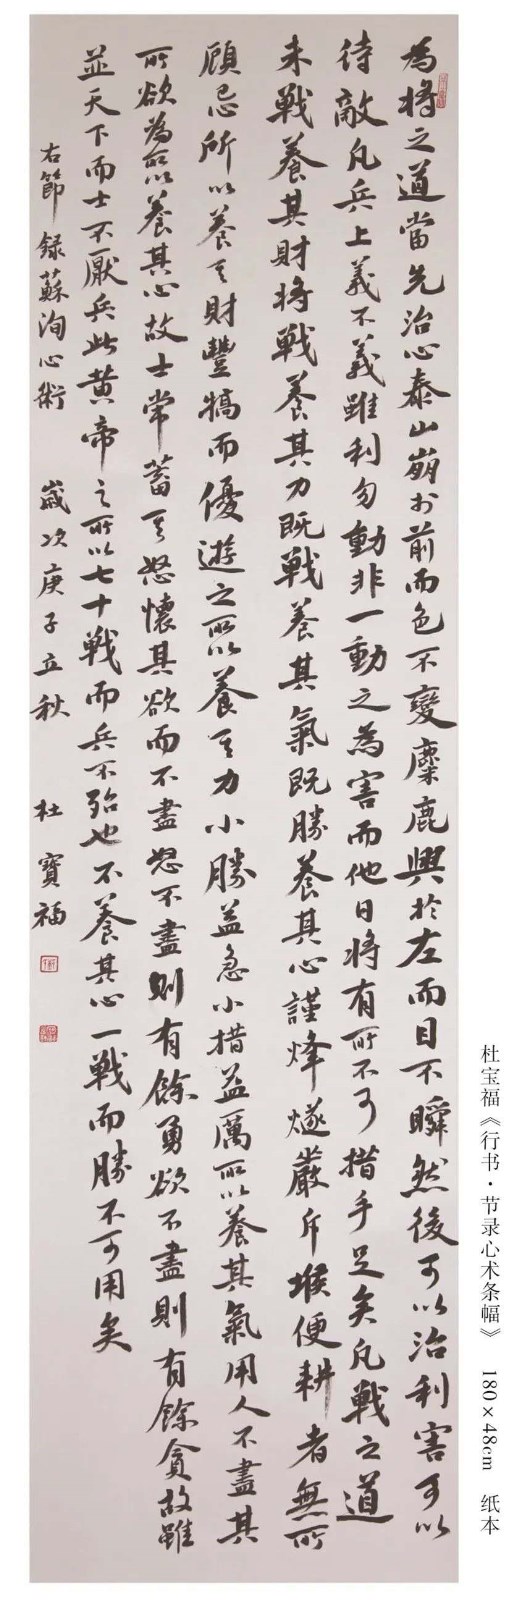 為將之道當先治心泰山崩於前而色不變麋鹿興於左而目不瞬然後可以治利害可以
待敵凡兵上義不義雖利勿動非一動之為害而他日將有所不可措手足矣凡戰之道
未戰養其財將戰養其力既戰養其氣既勝養其心謹烽燧嚴斥堠使耕者無所
顧忌所以養其財豐犒而優遊之所以養其力小勝益急小措益厲所以養其氣用人不盡其
所欲為所以養其心故士常蓄其怒懷其欲而不盡怒不盡則有餘勇欲不盡則有餘貪故雖
並天下而士不厭兵此黃帝之所以七十戰而兵不殆也不養其心一戰而勝不可用矣
右節錄蘇洵心術 歲次庚子立秋 杜寶福
杜宝福《行书·节录心术条幅》 180×48cm 纸本